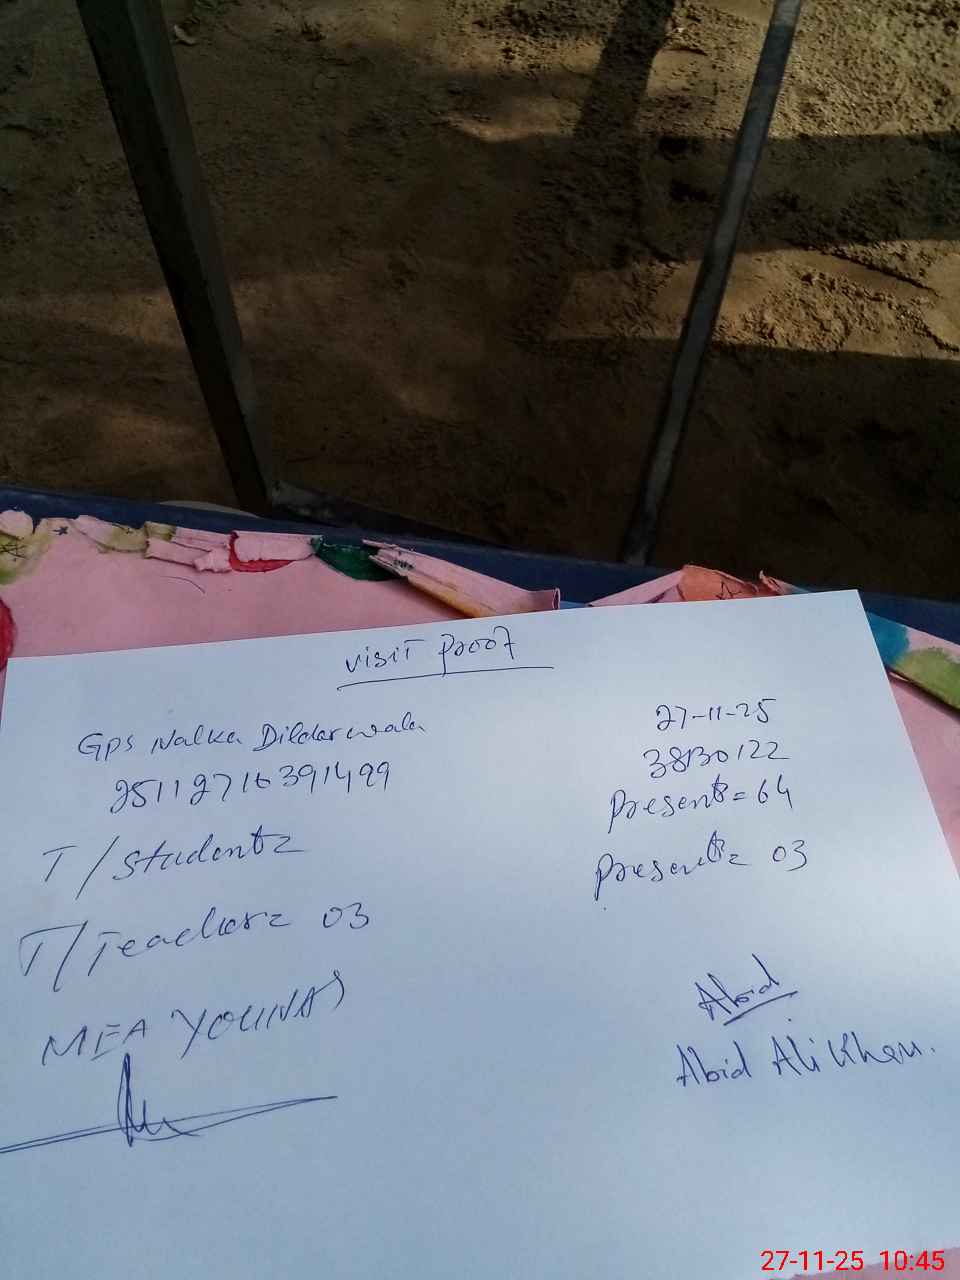 visit proof
GPS Nalka Dilderwala 27-11-25
25112716391499 38130122
T/Students Present= 64
T/Teachers= 03 Present= 03
MEA YOUNAS Abid
Abid Ali Khan.
27-11-25 10:45